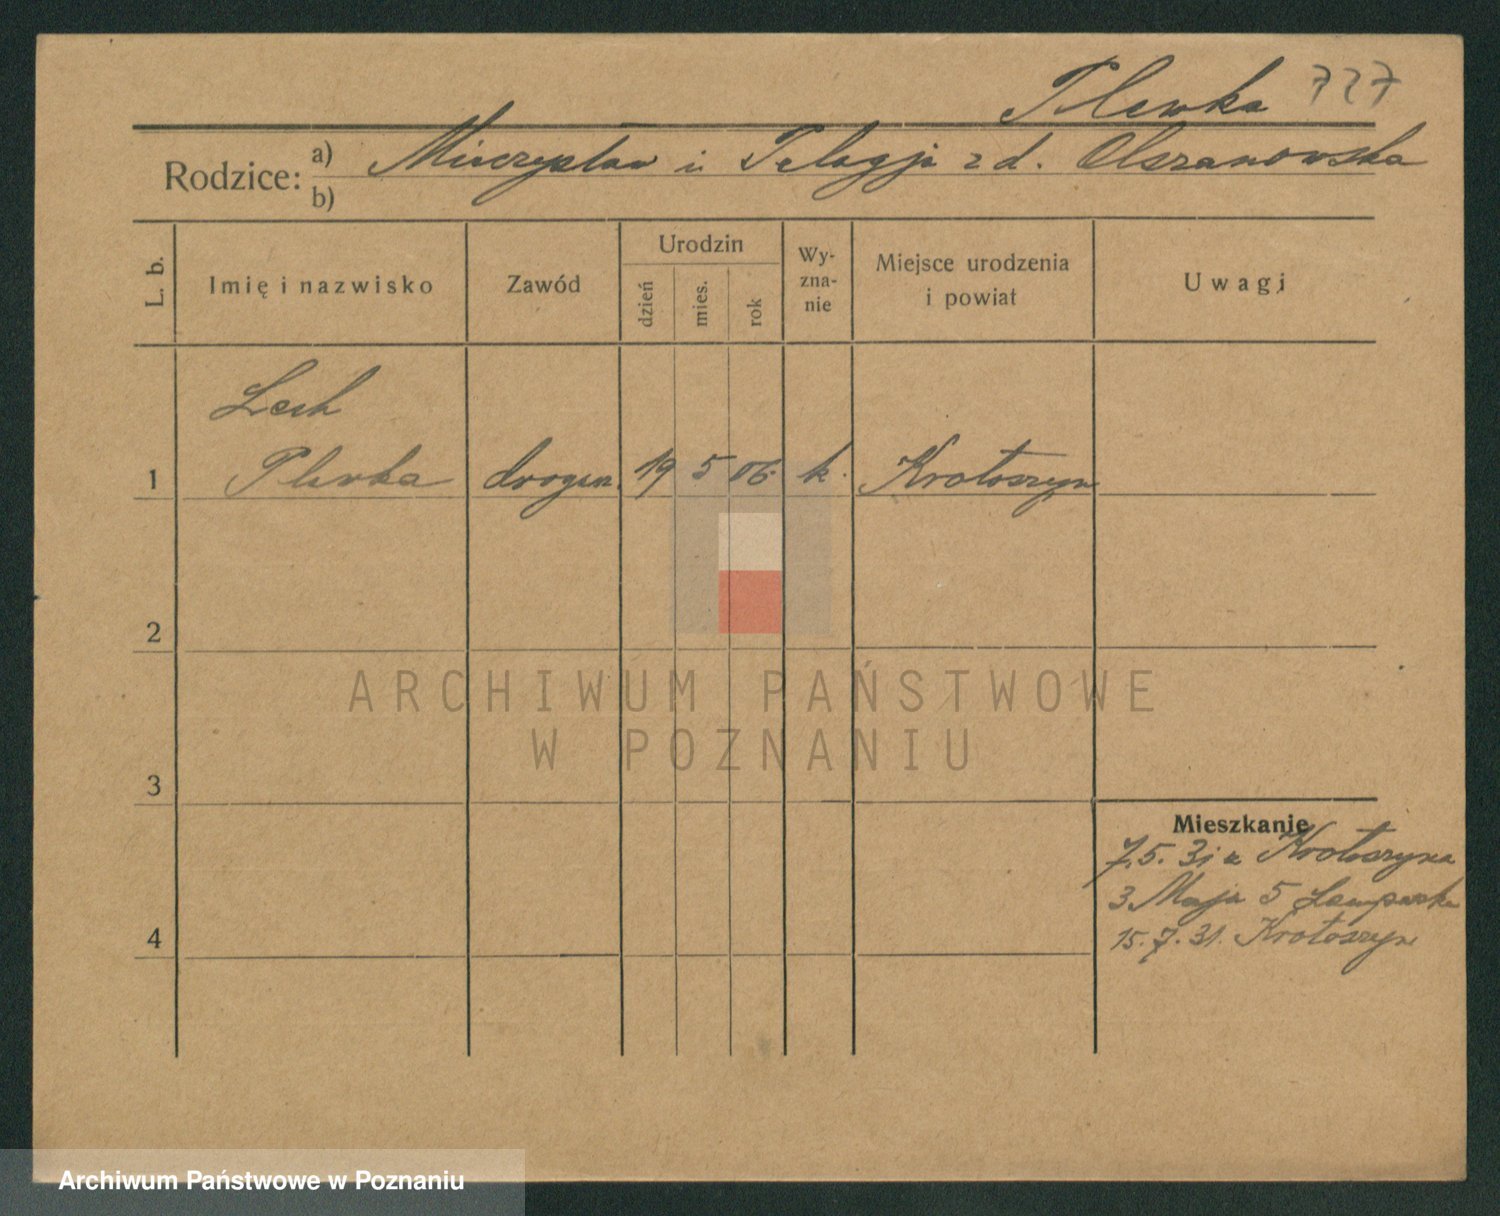 Plewka 727
Rodzice: a) Mieczysław i Pelagja z d. Olszanowska
b)
L. b. Imię i nazwisko Zawód Urodzin dzień mies. rok Wy-zna-nie Miejsce urodzenia i powiat Uwagi
Lech
1 Plewka drogen. 19 5 06. k. Krotoszyn
2
ARCHIWUM PAŃSTWOWE
W POZNANIU
3
Mieszkanie
7.5.31 z Krotoszyna
3 Maja 5
4 15.7.31. Krotoszyn
Archiwum Państwowe w Poznaniu